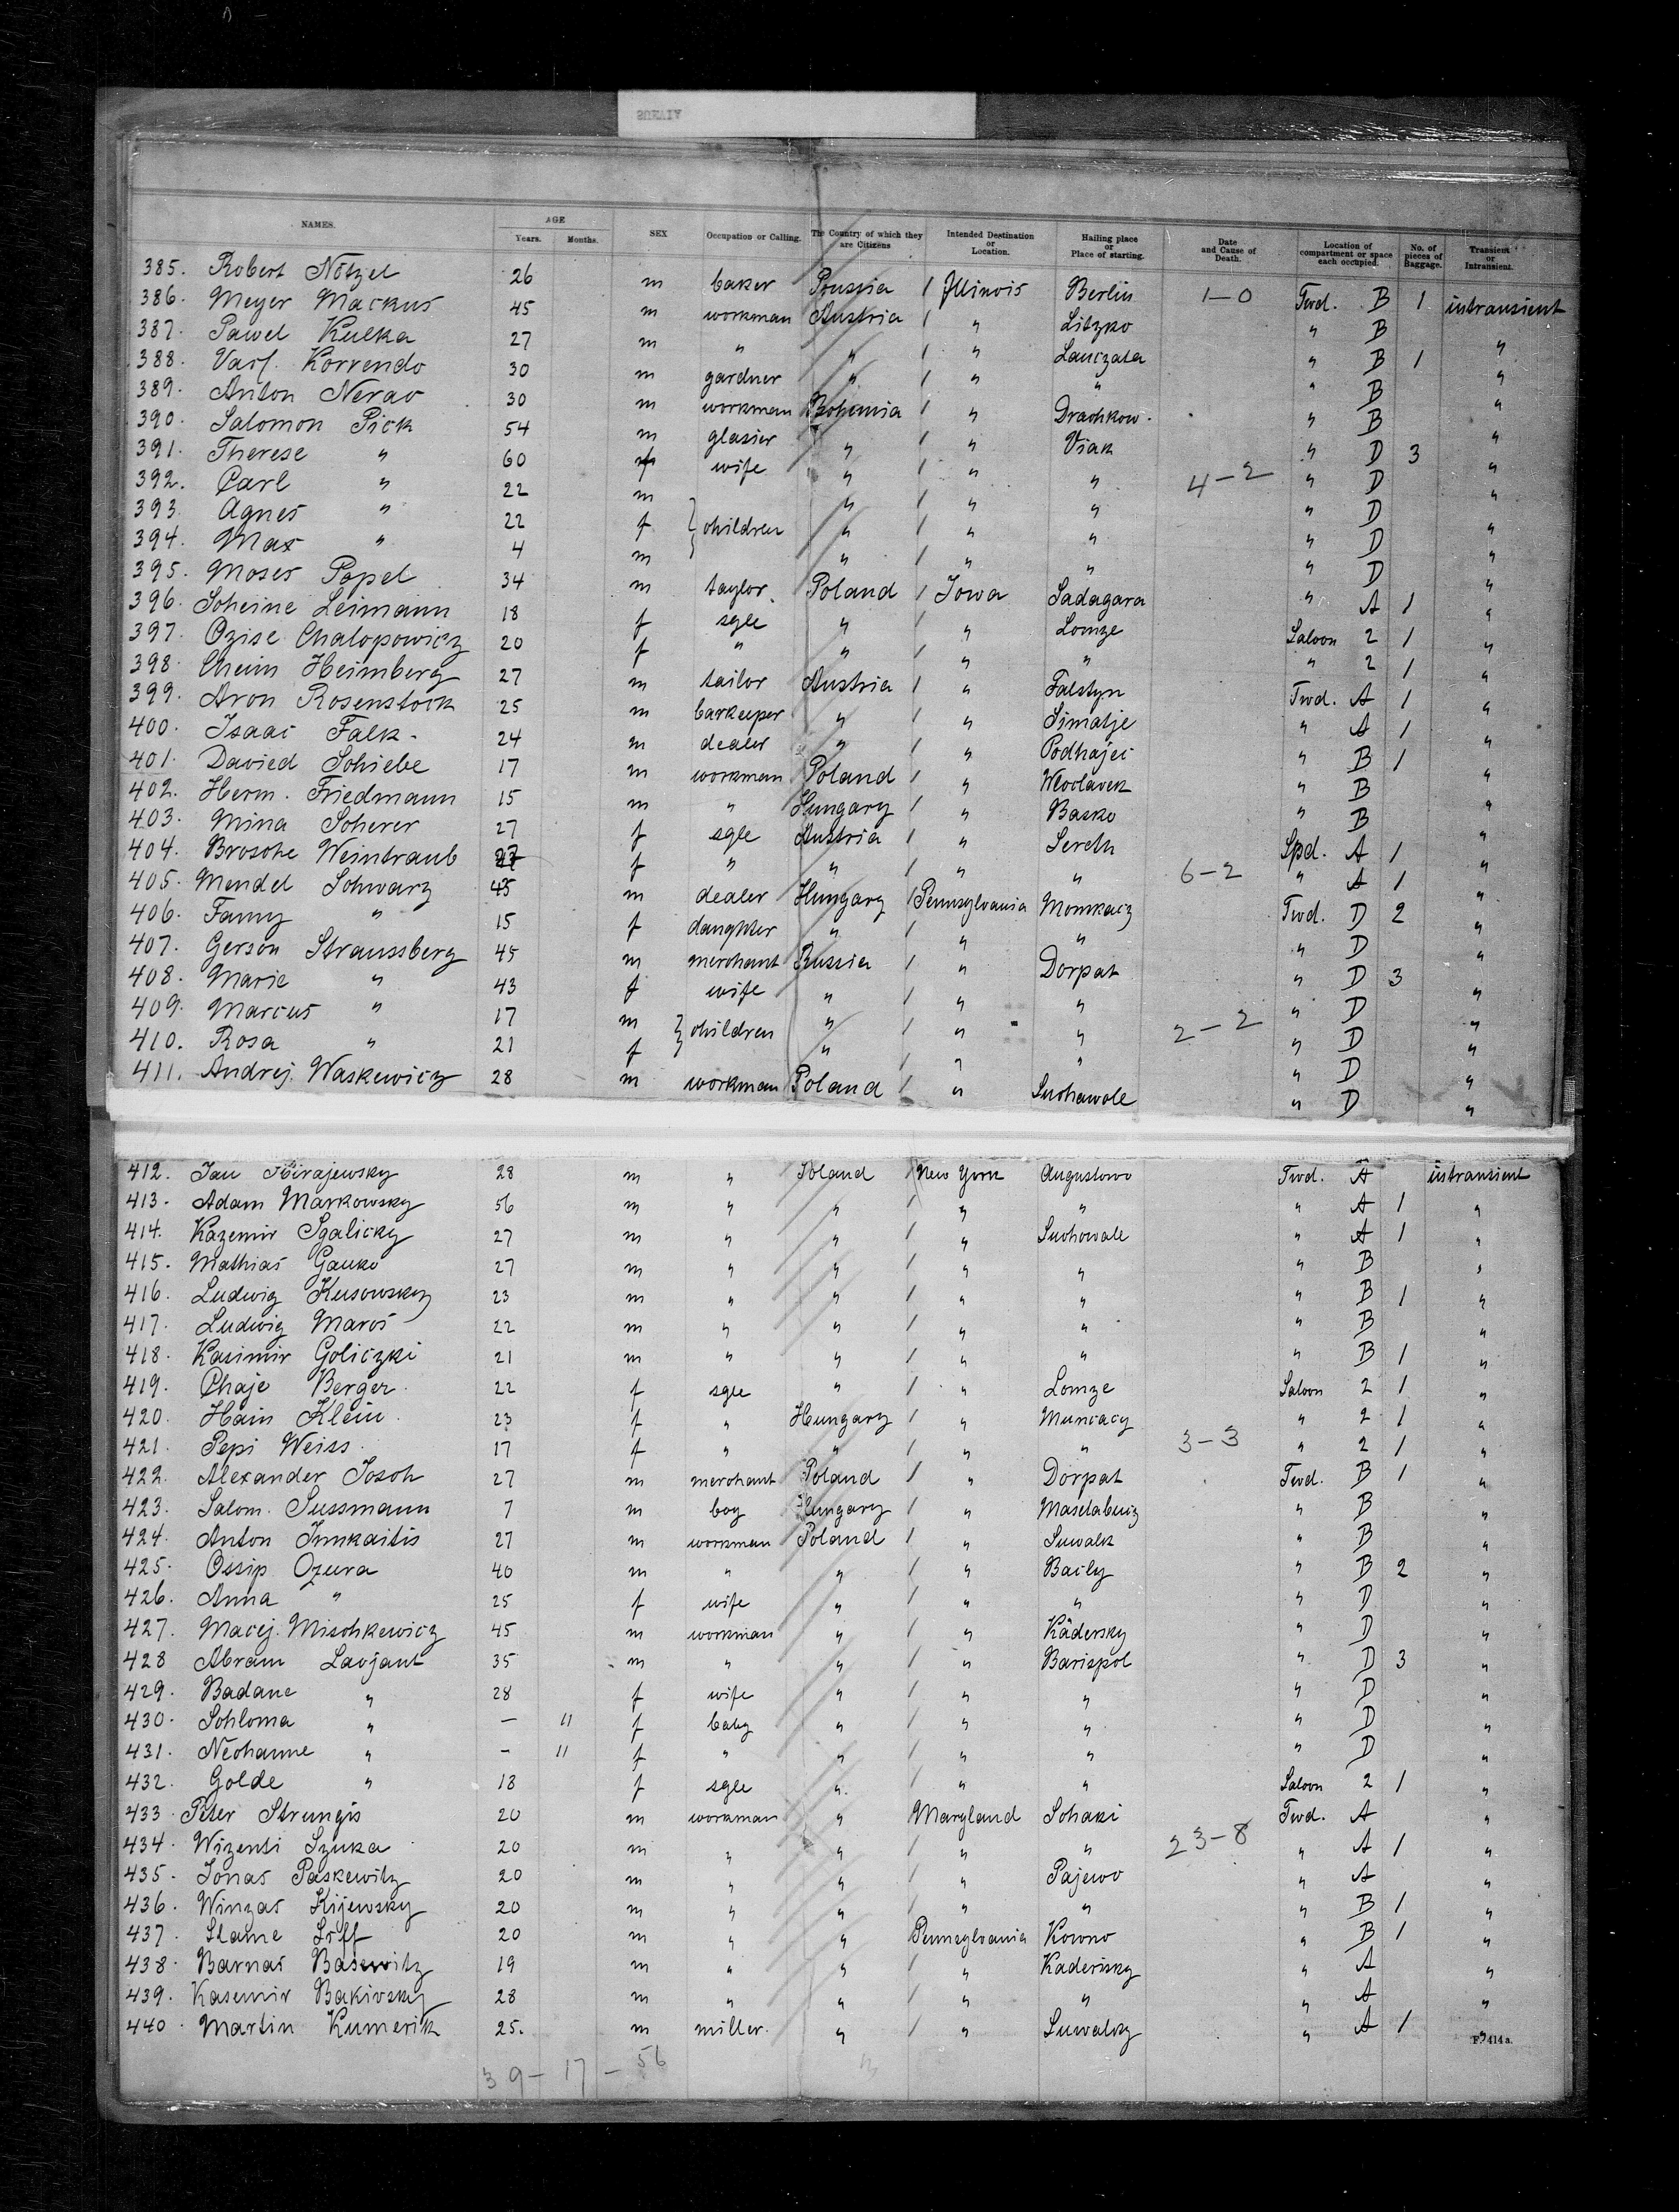 NAMES. AGE SEX Occupation or Calling. The Country of which they are Citizens Intended Destination or Location. Hailing place or Place of starting. Date and Cause of Death. Location of compartment or space each occupied. No. of pieces of Baggage. Transient or Intransient.
Years. Months.
385. Robert Nötzel 26 m baker Prussia / Illinois Berlin 1–0 Twd. B 1 intransient
386. Meyer Mackus 45 m workman Austria / " Litzko " B "
387. Pawel Kulka 27 m " " / " Lanczata " B 1 "
388. Vasf. Korrendo 30 m gardner " / " " " B "
389. Anton Nerav 30 m workman Bohemia / " Drachkow. " B "
390. Salomon Pick 54 m glasier " / " Viak " D 3 "
391. Therese " 60 f wife " / " " 4–2 " D "
392. Carl " 22 m } children " / " " " D "
393. Agnes " 22 f " / " " " D "
394. Max " 4 m " / " " " D "
395. Moses Popel 34 m taylor. Poland / Iowa Sadagara " A 1 "
396. Scheine Leimann 18 f sgle " / " Lomze Saloon 2 1 "
397. Ozise Chalopowicz 20 f " " / " " " 2 1 "
398. Cheim Heimberg 27 m tailor Austria / " Falstyn Twd. A 1 "
399. Aron Rosenstock 25 m barkeeper " / " Simatje " A 1 "
400. Isaac Falk. 24 m dealer " / " Podhajec " B 1 "
401. Davied Schiebe 17 m workman Poland / " Wloclavek " B "
402. Herm. Friedmann 15 m " Hungary / " Basko " B "
403. Mina Scherer 27 f sgle Austria / " Sereth Spd. A 1 "
404. Brosche Weintraub 27 f " " / " " 6–2 " A 1 "
405. Mendel Schwarz 45 m dealer Hungary / Pennsylvania Momkacz Twd. D 2 "
406. Fanny " 15 f daughter " / " " " D "
407. Gerson Straussberg 45 m merchant Russia / " Dorpat " D 3 "
408. Marie " 43 f wife " / " " " D "
409. Marcus " 17 m } children " / " " 2–2 " D "
410. Rosa " 21 f " / " " " D "
411. Andrej. Waskewicz 28 m workman Poland / " Suchawole " D "
412. Jan Kirajewsky 28 m " Poland / New York Augustowo Twd. A intransient
413. Adam Markowsky 56 m " " / " " " A 1 "
414. Kazemir Sgalicky 27 m " " / " Suchowale " A 1 "
415. Mathias Gauko 27 m " " / " " " B "
416. Ludwig Kusowsky 23 m " " / " " " B 1 "
417. Ludwig Maros 22 m " " / " " " B "
418. Kasimir Goliczki 21 m " " / " " " B 1 "
419. Chaje Berger. 22 f sgle " / " Lomze Saloon 2 1 "
420. Hain Klein. 23 f " Hungary / " Muncacy " 2 1 "
421. Pepi Weiss. 17 f " " / " " 3–3 " 2 1 "
422. Alexander Josch 27 m merchant Poland / " Dorpat Twd. B 1 "
423. Salom. Sussmann 7 m boy Hungary / " " B "
424. Anton Junkaitis 27 m workman Poland / " Suwalk " B "
425. Ossip Ozura 40 m " " / " Baily " B 2 "
426. Anna " 25 f wife " / " " " D "
427. Macej. Mischkewicz 45 m workman " / " Kädersky " D "
428 Abram Lavjant 35 m " " / " Barispol " D 3 "
429. Badane " 28 f wife " / " " " D "
430. Schloma " – 11 f baby " / " " " D "
431. Nechanne " – 11 f " " / " " " D "
432. Golde " 18 f sgle " / " " Saloon 2 1 "
433. Peter Strungis 20 m workman " Maryland Schaki Twd. A "
434. Wizenti Szuka 20 m " " / " " 23–8 " A 1 "
435. Jonas Paskewitz 20 m " " / " Pajewo " A "
436. Winzas Kijewsky 20 m " " / " " " B 1 "
437. Slame Siff 20 m " " Pennsylvania Kowno " B 1 "
438. Barnas Basewitz 19 m " " / " Kaderisky " A "
439. Kasemir Bakivsky 28 m " " / " " " A "
440. Martin Kumerik 25. m miller. " / " Suwalky " A 1 "
F. 414a.
39–17–56